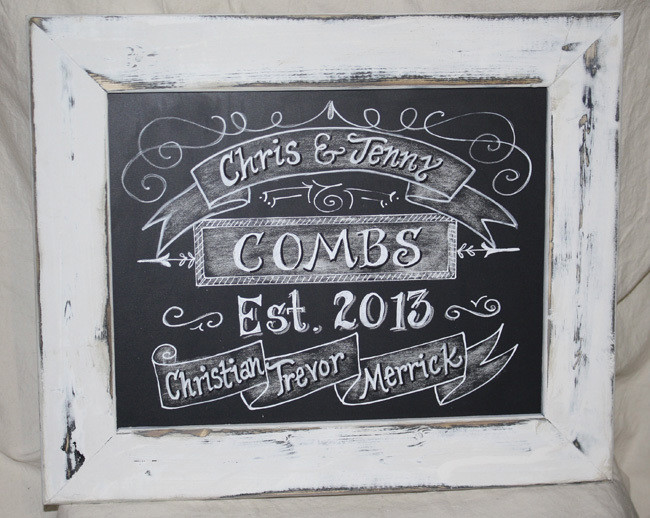 Chris & Jenny
COMBS
Est. 2013
Christian Trevor Merrick